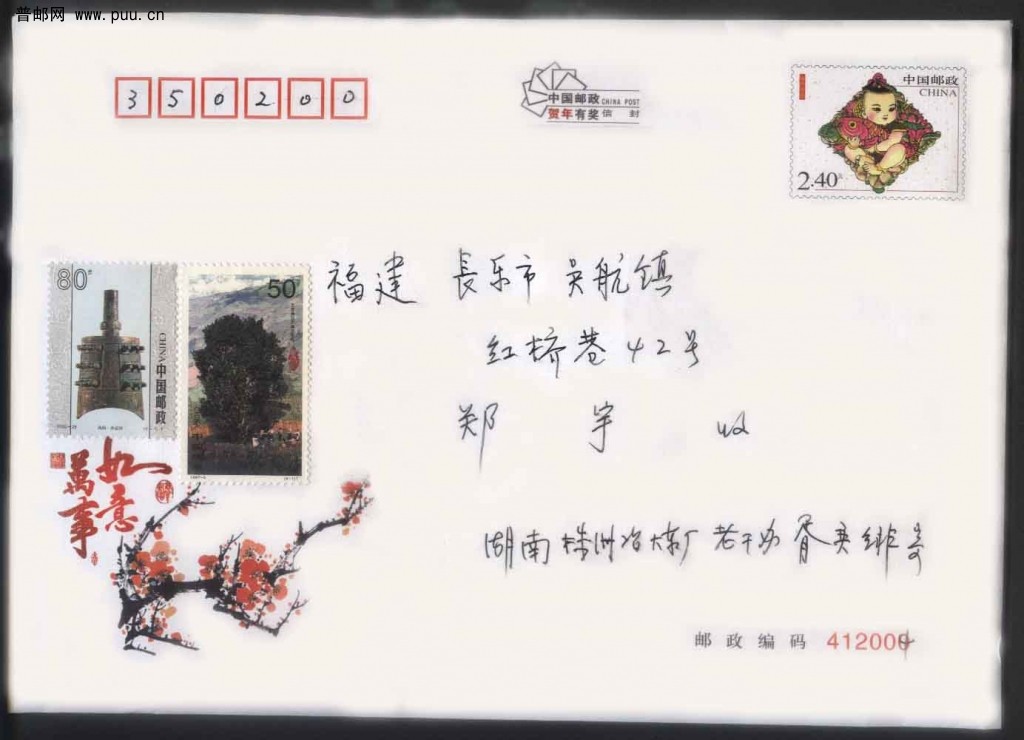 普邮网 www.puu.cn
350200
中国邮政 CHINA POST
贺年有奖信封
中国邮政
CHINA
2.40元
80分
CHINA中国邮政
50分
福建 長乐市 吴航镇
红桥巷 42号
郑 宇 收
如意
萬事
湖南株洲冶炼厂 老干办
邮政编码 412000